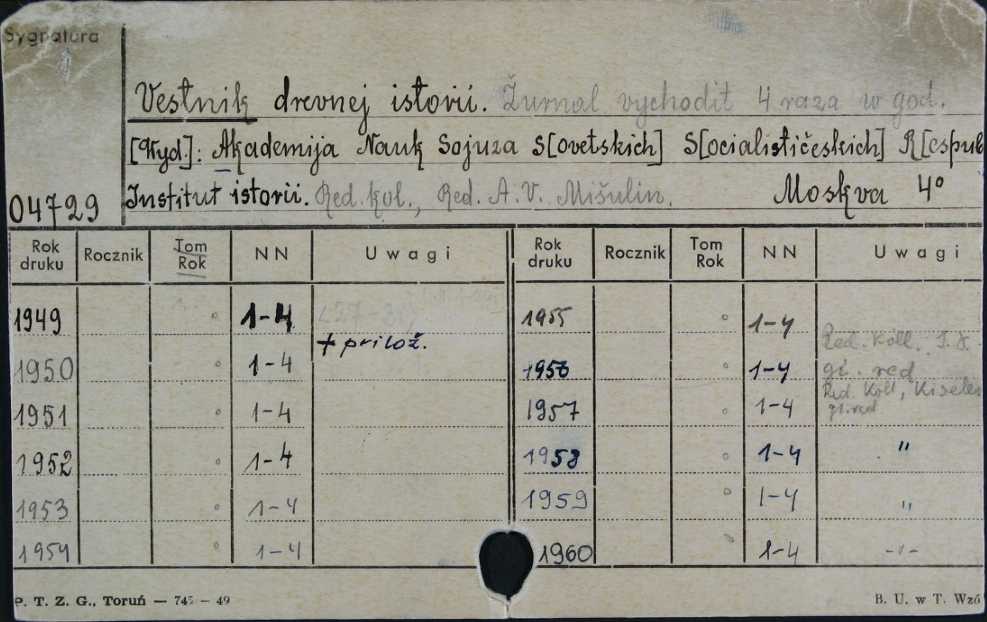 Sygnatura
Vestnik drevnej istorii. Žurnal vychodit 4 raza w god.
[Wyd.]: Akademija Nauk Sojuza S[ovetskich] S[ocialističeskich] R[espub
04729 Institut istorii. Red. kol., Red. A.V. Mišulin. Moskva 4°
Rok druku Rocznik Tom Rok NN Uwagi Rok druku Rocznik Tom Rok NN Uwagi
1949 1-4 1955 1-4
+ prilož. Red. Koll.
1950 1-4 1956 1-4 gł. red
Red. Koll, Kisele
1951 1-4 1957 1-4 gł. red
1952 1-4 1958 1-4 "
1953 1-4 1959 1-4 "
1954 1-4 1960 1-4 -"-
P. T. Z. G., Toruń — 49 B. U. w T. Wzó